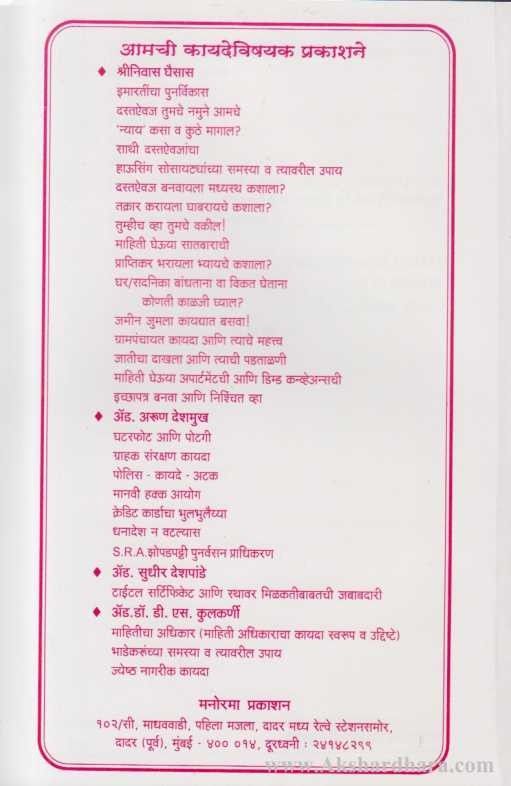 आमची कायदेविषयक प्रकाशने
♦ श्रीनिवास घैसास
इमारतींचा पुनर्विकास
दस्तऐवज तुमचे नमुने आमचे
'न्याय' कसा व कुठे मागाल?
साथी दस्तऐवजांचा
हाऊसिंग सोसायट्यांच्या समस्या व त्यावरील उपाय
दस्तऐवज बनवायला मध्यस्थ कशाला?
तक्रार करायला घाबरायचे कशाला?
तुम्हीच व्हा तुमचे वकील!
माहिती घेऊया सातबाराची
प्राप्तिकर भरायला भ्यायचे कशाला?
घर/सदनिका बांधताना वा विकत घेताना
कोणती काळजी घ्याल?
जमीन जुमला कायद्यात बसवा!
ग्रामपंचायत कायदा आणि त्याचे महत्त्व
जातीचा दाखला आणि त्याची पडताळणी
माहिती घेऊया अपार्टमेंटची आणि डिम्ड कन्व्हेअन्सची
इच्छापत्र बनवा आणि निश्चिंत व्हा
♦ ॲड. अरूण देशमुख
घटस्फोट आणि पोटगी
ग्राहक संरक्षण कायदा
पोलिस - कायदे - अटक
मानवी हक्क आयोग
क्रेडिट कार्डाचा भुलभुलैय्या
धनादेश न वटल्यास
S.R.A.झोपडपट्टी पुनर्वसन प्राधिकरण
♦ ॲड. सुधीर देशपांडे
टाईटल सर्टिफिकेट आणि स्थावर मिळकतीबाबतची जबाबदारी
♦ ॲड.डॉ. डी. एस. कुलकर्णी
माहितीचा अधिकार (माहिती अधिकाराचा कायदा स्वरूप व उद्दिष्टे)
भाडेकरूंच्या समस्या व त्यावरील उपाय
ज्येष्ठ नागरीक कायदा
मनोरमा प्रकाशन
१०२/सी, माधववाडी, पहिला मजला, दादर मध्य रेल्वे स्टेशनसमोर,
दादर (पूर्व), मुंबई - ४०० ०१४, दूरध्वनी : २४१४८२९९
www.Akshardhara.com